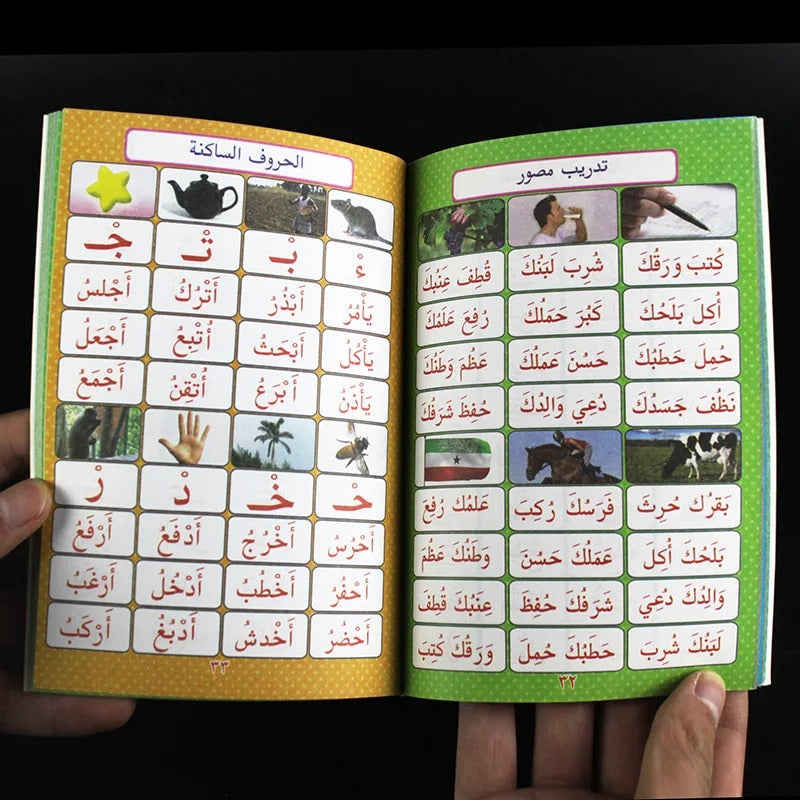 تدريب مصور
كُتِبَ وَرَقُكَ شُرِبَ لَبَنُكَ قُطِفَ عِنَبُكَ
أُكِلَ بَلَحُكَ كَبُرَ حَمَلُكَ رُفِعَ عَلَمُكَ
حُمِلَ حَطَبُكَ حَسُنَ عَمَلُكَ عَظُمَ وَطَنُكَ
نَظُفَ جَسَدُكَ دُعِيَ وَالِدُكَ حُفِظَ شَرَفُكَ
بَقَرُكَ حُرِثَ فَرَسُكَ رُكِبَ عَلَمُكَ رُفِعَ
بَلَحُكَ أُكِلَ عَمَلُكَ حَسُنَ وَطَنُكَ عَظُمَ
وَالِدُكَ دُعِيَ شَرَفُكَ حُفِظَ عِنَبُكَ قُطِفَ
لَبَنُكَ شُرِبَ حَطَبُكَ حُمِلَ وَرَقُكَ كُتِبَ
٣٢
الحروف الساكنة
ءْ بْ تْ جْ
يَأْمُرُ أَبْذُرُ أَتْرُكُ أَجْلسُ
يَأْكُلُ أَبْحَثُ أُتْبِعُ أَجْعَلُ
يَأْذَنُ أَبْرَعُ أُتْقِنُ أَجْمَعُ
حْ خْ دْ رْ
أَحْرُسُ أَخْرُجُ أَدْفَعُ أَرْفَعُ
أَحْفُرُ أَخْطُبُ أَدْخُلُ أَرْغَبُ
أَحْضُرُ أَخْدشُ أَدْبُغُ أَرْكَبُ
٣٣